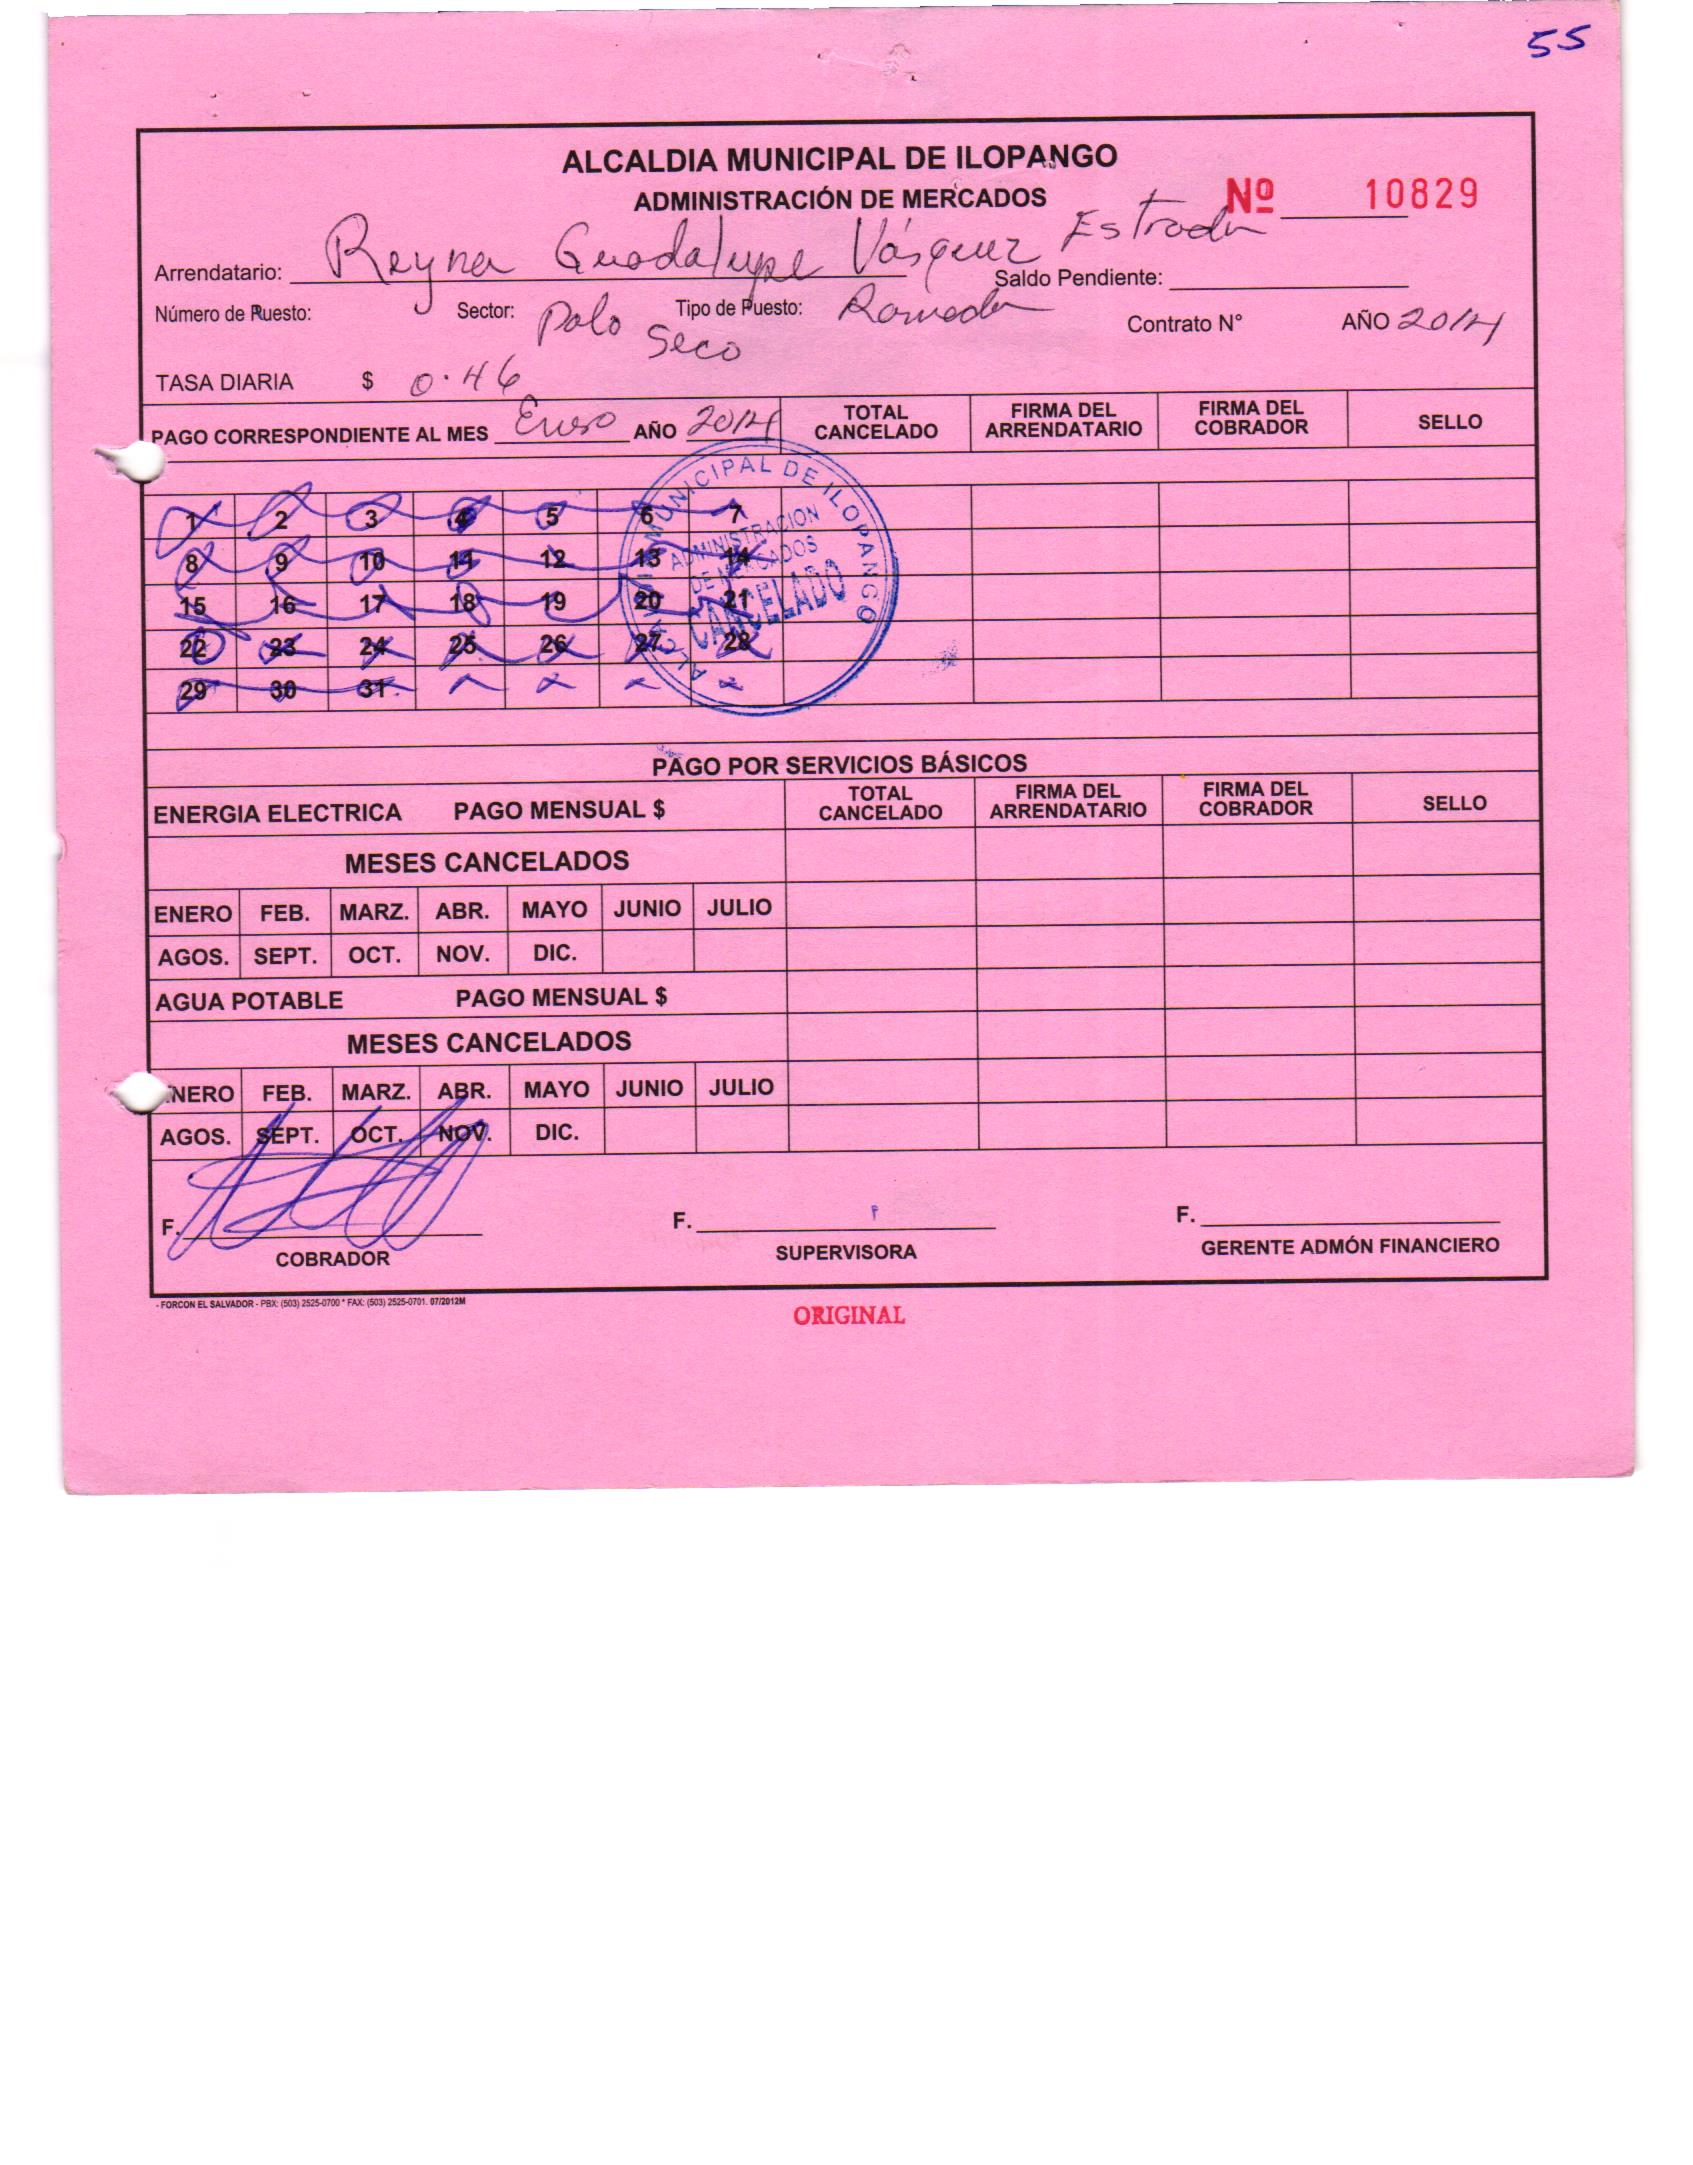 55
ALCALDIA MUNICIPAL DE ILOPANGO
ADMINISTRACIÓN DE MERCADOS
Nº 10829
Arrendatario: Reyna Guadalupe Vásquez Estrada
Saldo Pendiente:
Número de Puesto: Sector: Palo Seco Tipo de Puesto: Rameda Contrato N° AÑO 2014
TASA DIARIA $ 0.46
PAGO CORRESPONDIENTE AL MES Enero AÑO 2014 TOTAL CANCELADO FIRMA DEL ARRENDATARIO FIRMA DEL COBRADOR SELLO
1 2 3 4 5 6 7
8 9 10 11 12 13 14
15 16 17 18 19 20 21
22 23 24 25 26 27 28
29 30 31
ALCALDIA MUNICIPAL DE ILOPANGO
ADMINISTRACION
DE MERCADOS
CANCELADO
PAGO POR SERVICIOS BÁSICOS
ENERGIA ELECTRICA PAGO MENSUAL $ TOTAL CANCELADO FIRMA DEL ARRENDATARIO FIRMA DEL COBRADOR SELLO
MESES CANCELADOS
ENERO FEB. MARZ. ABR. MAYO JUNIO JULIO
AGOS. SEPT. OCT. NOV. DIC.
AGUA POTABLE PAGO MENSUAL $
MESES CANCELADOS
ENERO FEB. MARZ. ABR. MAYO JUNIO JULIO
AGOS. SEPT. OCT. NOV. DIC.
F. F. F.
COBRADOR SUPERVISORA GERENTE ADMÓN FINANCIERO
- FORCON EL SALVADOR - PBX: (503) 2525-0700 * FAX: (503) 2525-0701. 07/2012M
ORIGINAL